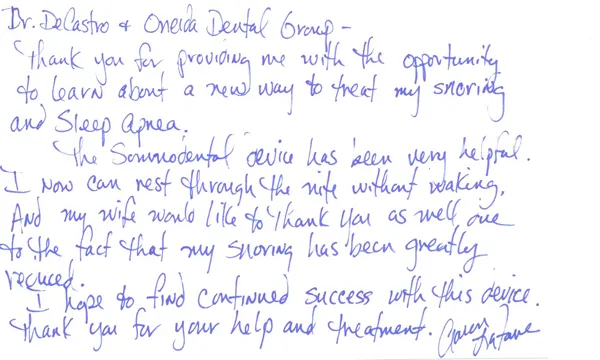 Dr. DeCastro & Oneida Dental Group -
Thank you for providing me with the opportunity
to learn about a new way to treat my snoring
and Sleep Apnea.
The Somnodental device has been very helpful.
I now can rest through the nite without waking.
And my wife would like to thank you as well due
to the fact that my snoring has been greatly
reduced.
I hope to find continued success with this device.
Thank you for your help and treatment.